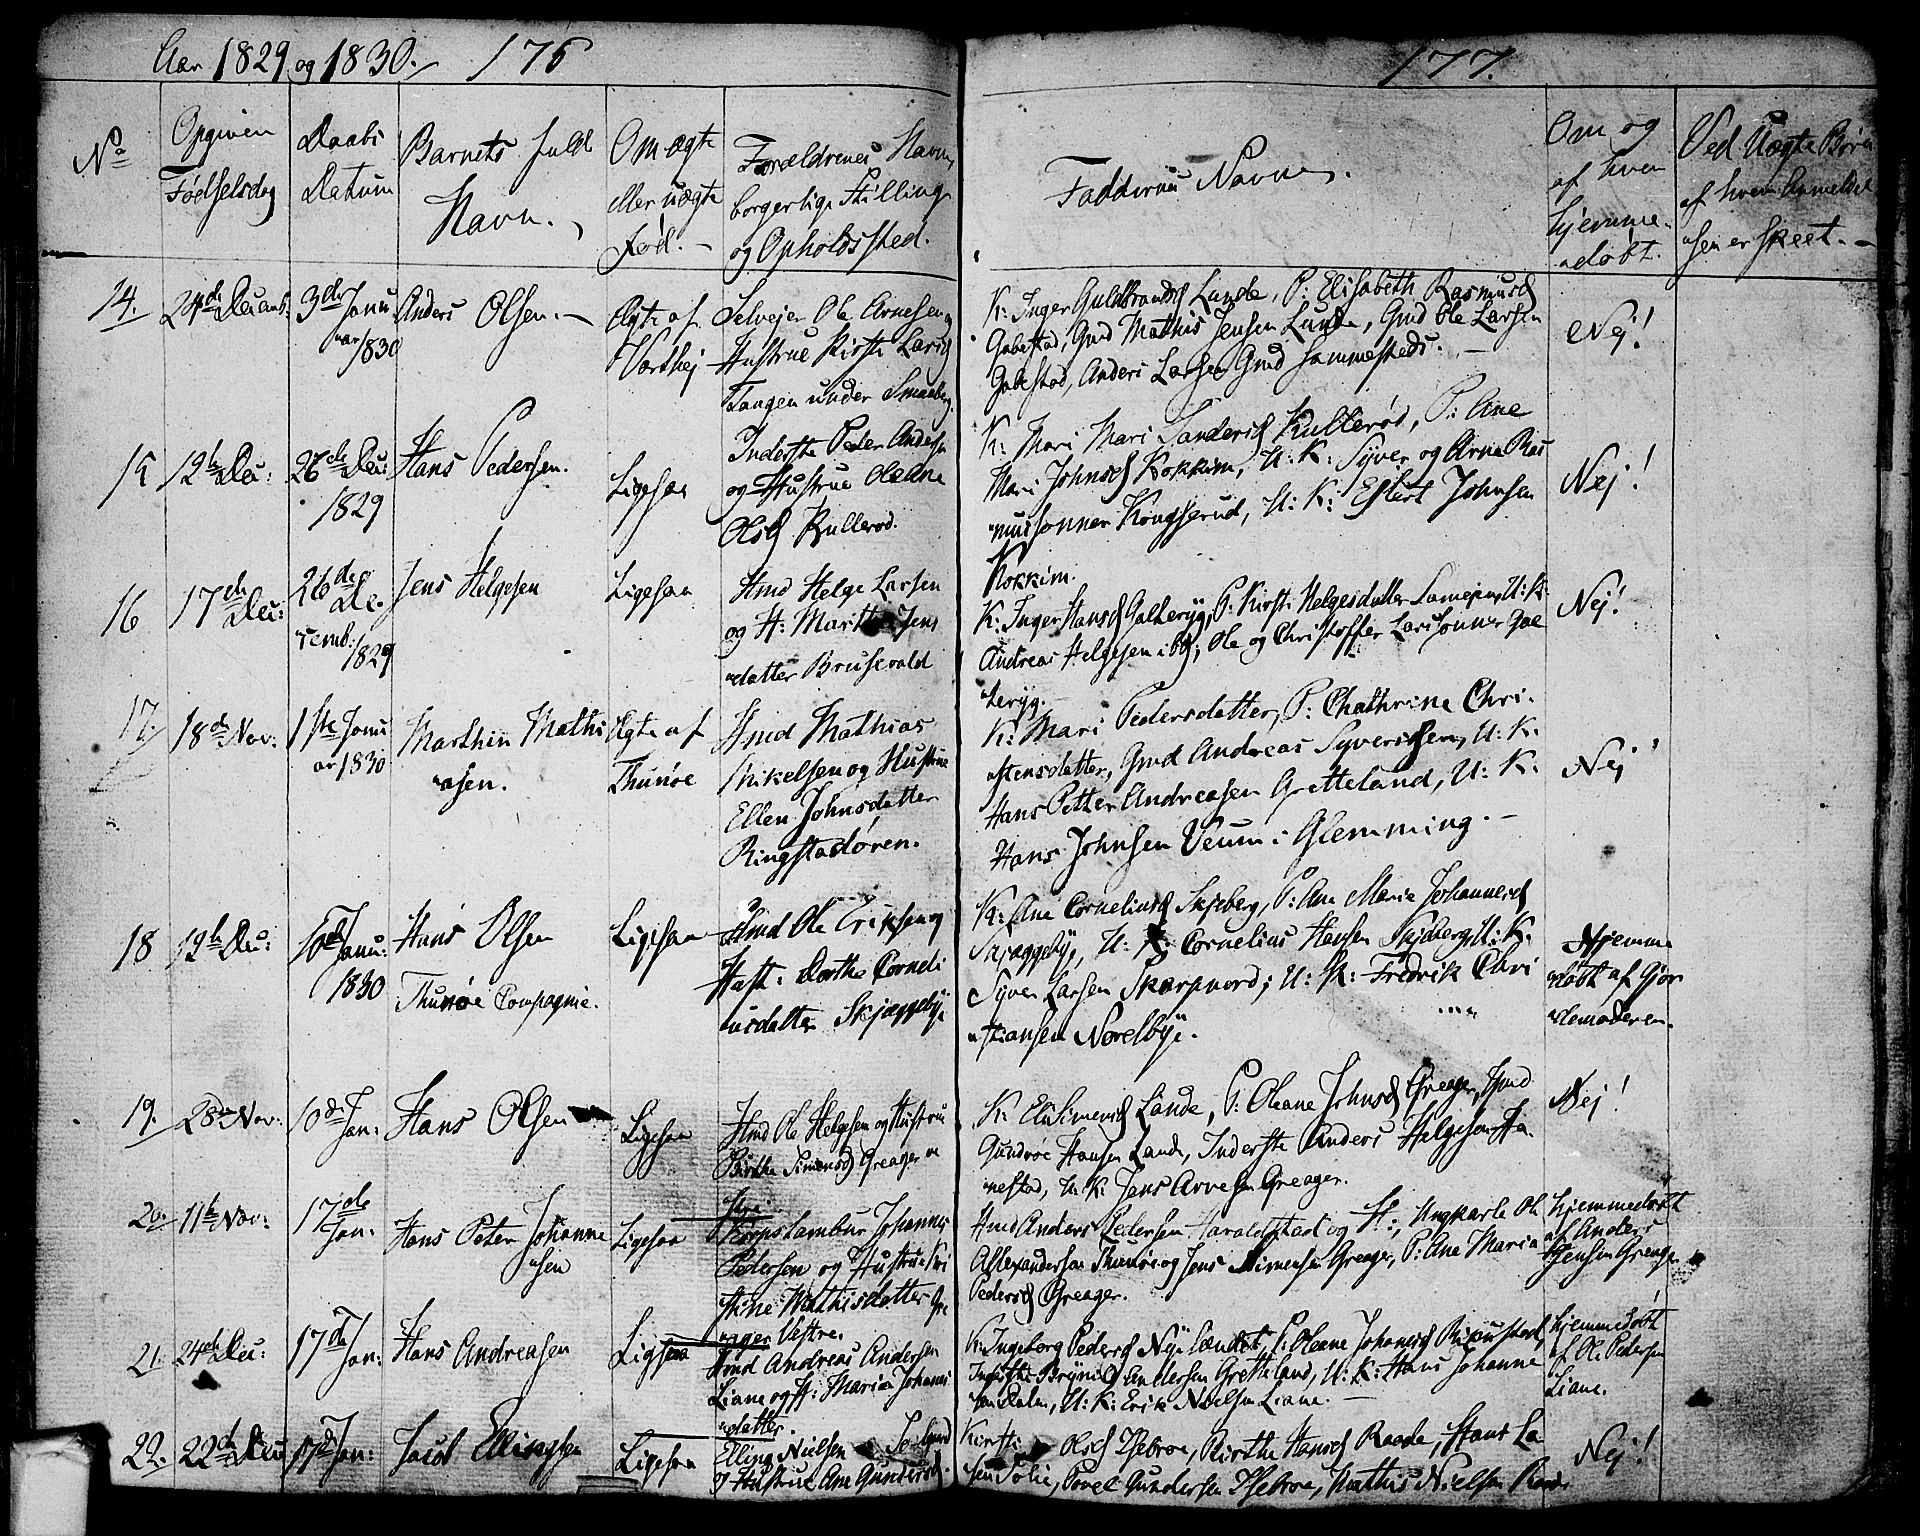 Aar 1829 og 1830. 176
177.
No
Opgiven
Fødselsdag
Daabs
Datum
Barnets fuld
Navn.
Om ægte
eller uægte
Fød.
Forældrenes Navn,
borgerlige Stilling
og Opholdssted.
Faddernes Navne.
Om og
af hvem
hjemme-
døbt.
Ved Uægte Børn
af hvem Anmeldel
sen er skeet.
14.
24de Decemb:
3de Janu
uar 1830
Anders Olsen.
Ægte af
Selvejer Ole Arnesen og
Hustrue Kirsti Larsd
Tangen under Smaaberg.
K: Inger Guldbrandsd Lunde, P: Elisabeth Rasmusd
Gabestad, Gmd Mathis Jensen Lunde, Gmd Ole Larsen
Gabestad, Anders Larsen Gmd sammesteds.
Nej!
15
12te Dec:
26de Dec:
1829
Hans Pedersen.
Ligesaa
Inderste Peder Andersen
og Hustrue Oleane
Olsd Kullerød.
K: Mari Mari Sandersd Kullerød, P: Ane
Mari Johnsd Kokkim, U: K: Syver og Arne Ras
mussønner Kongserud, U: K: Ejlert Johnsen
Kokkim.
Nej!
16
17de Dec:
26de De-
cemb: 1829
Jens Helgesen
Ligesaa
Hmd Helge Larsen
og H: Marthe Jens
datter Brusevold
K: Inger Hansd Galteryg, P: Kirsti Helgesdatter Samejen, U: K:
Andreas Helgesen ibd, Ole og Christoffer Larssønner Gal
teryg.
Nej!
17.
18de Nov:
1ste Janu
ar 1830
Marthin Mathi
asen.
Ægte af
Thunøe
Hmd Mathias
Mikelsen og Hustrue
Ellen Johnsdatter
Ringstadøren.
K: Mari Pedersdatter, P: Chathrine Chri-
stensdatter, Gmd Andreas Syversen, U: K:
Hans Petter Andreasen Gretteland, U: K:
Hans Johnsen Veum i Glemming.
Nej!
18
19de Dec:
10de Janu:
1830
Hans Olsen
Thunøe Compagnie.
Ligesaa
Hmd Ole Eriksen og
Hust: Dorthe Corneli
usdatter Skjæggebye
K: Ane Corneliusd Skjeberg, P: Ane Marie Johannesd
Skjæggebye, U: K: Cornelius Hansen Skjeberg, U: K:
Syver Larsen Skarpnord, U: K: Fredrik Chri
stiansen Nørelbye.
Hjemme
døbt af Gjor
demoderen.
19.
28de Nov:
10de Jan:
Hans Olsen
Ligesaa
Hmd Ole Helgesen og Hustru
Birthe Simensd Greager
K: Eli Simensd Lande, P: Oleane Johnsd Greager, Hmd
Gundroe Hansen Lande, Inderste Anders Helgesen Ha-
nestad, U: K: Jens Arvesen Greager.
Nej!
20.
11te Nov:
17de
Jan:
Hans Peter Johanne
sen
Ligesaa
Korpstambur Johannes
Pedersen og Hustrue Kri
stine Mathisdatter Gre
ager Vestre.
Hmd Anders Pedersen Haraldstad og H:, Ungkarle Ole
Allexandersen Thunøe og Jens Simensen Greager, P: Ane Maria
Pedersd Greager.
Hjemmedøbt
af Anders
Jensen Greager
21.
24de Dec:
17de Jan:
Hans Andreasen
Ligesaa
Hmd Andreas Andersen
Liane og H: Maria Johannes
datter.
K: Ingeborg Pedersd Nye Lændet, P: Oleane Johannesd
Andersen Gretteland, U: K: Hans Johanne
sen Dalen, U: K: Erik Nielsen Liane.
Hjemmedøbt
af Ole Pedersen
Liane.
22.
22de Dec
17de Jan:
Jacob Ellingsen
Ligesaa
Elling Nielsen
Hustrue Ane Gundersd.
Kirsti Olsd Isebroe, Birthe Hansd Raade, Hans La
sen Solie, Povel Gundersen Isebroe, Mathis Nielsen Raade
Nej!